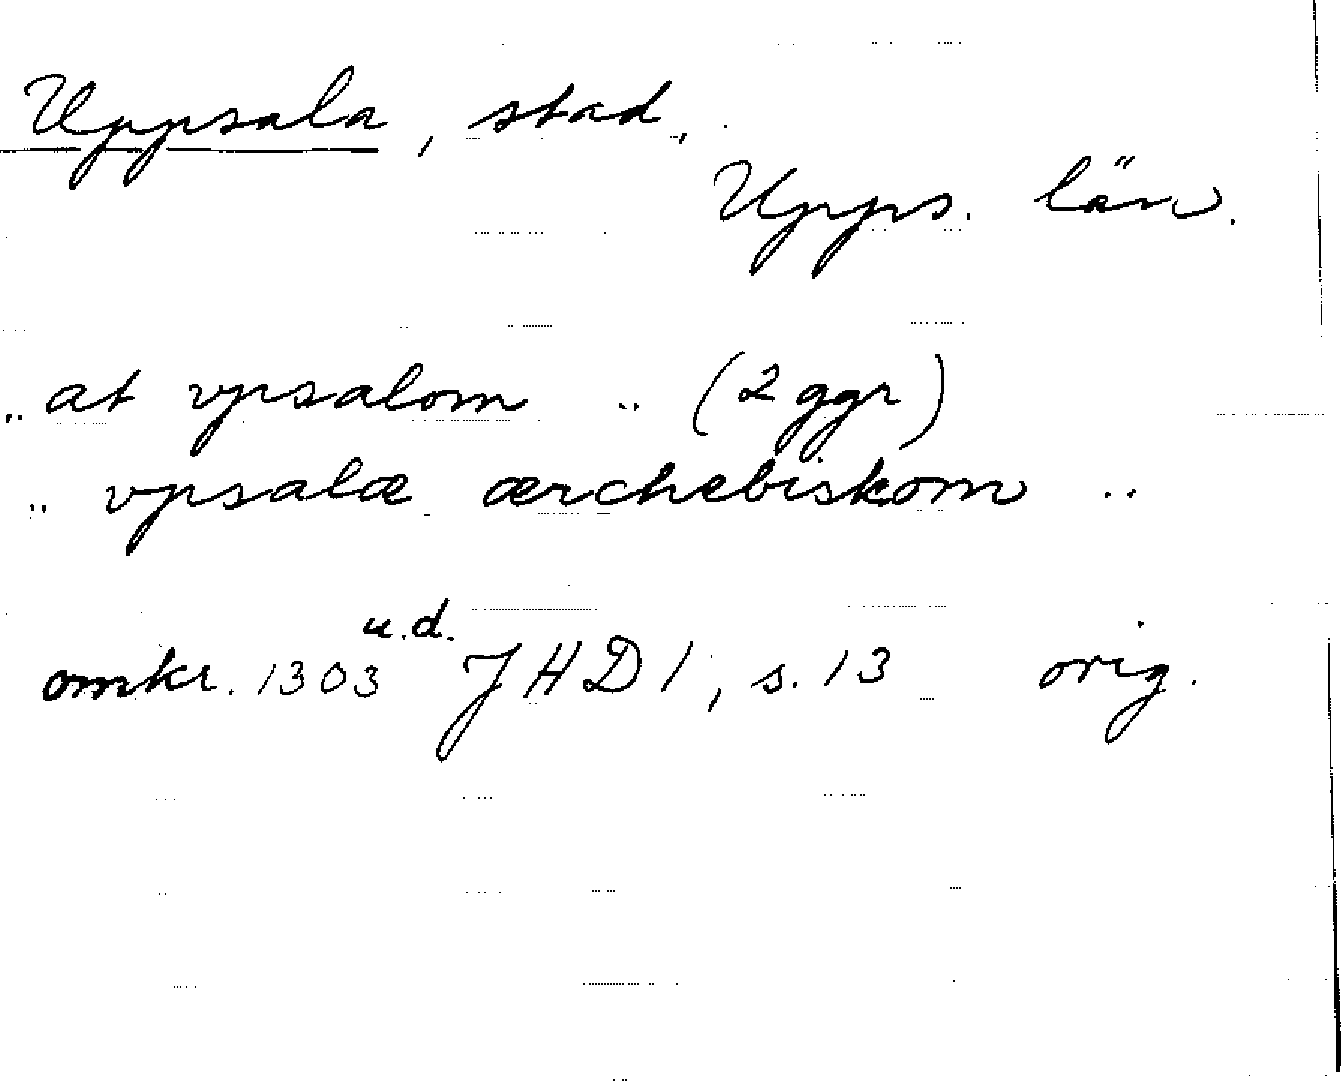 Uppsala, stad,
Upps. län.
.. at vpsalom .. (2 ggr)
.. vpsalæ ærchebiskom ..
omkr. 1303 u.d. JHD 1, s. 13 orig.